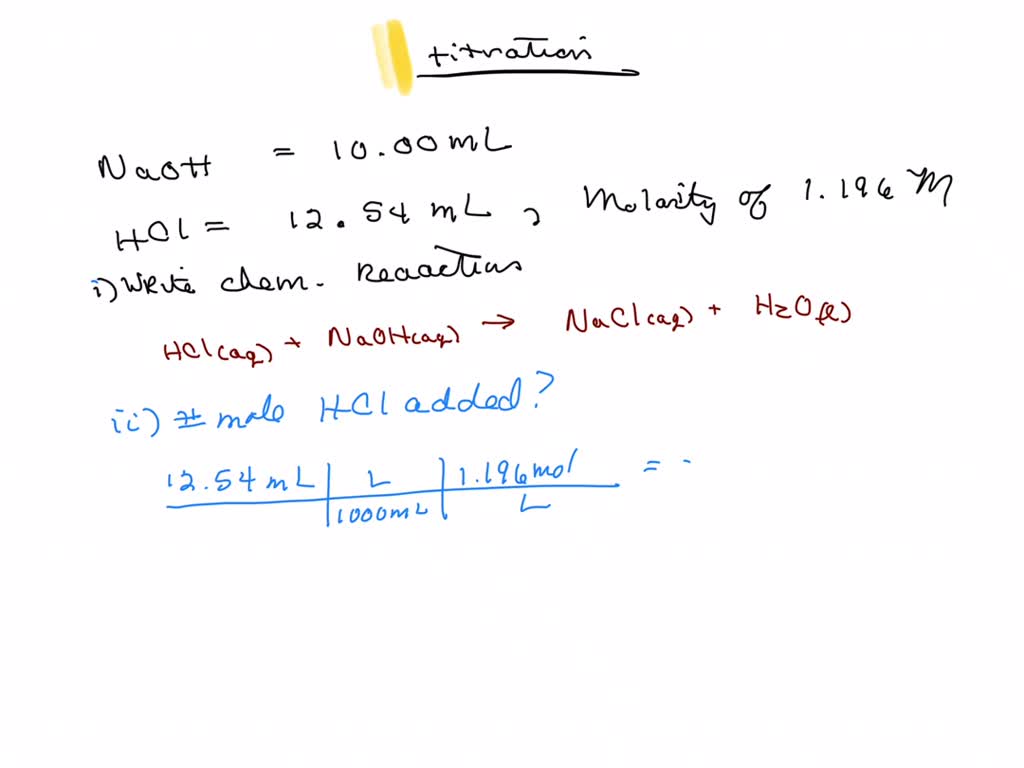 titration
NaOH = 10.00 mL
HCl = 12.54 mL, Molarity of 1.196 M
i) Write chem. Reaactions
HCl(aq) + NaOH(aq) → NaCl(aq) + H2O(l)
ii) # mole HCl added?
12.54 mL | L | 1.196 mol = -
1000 mL | L